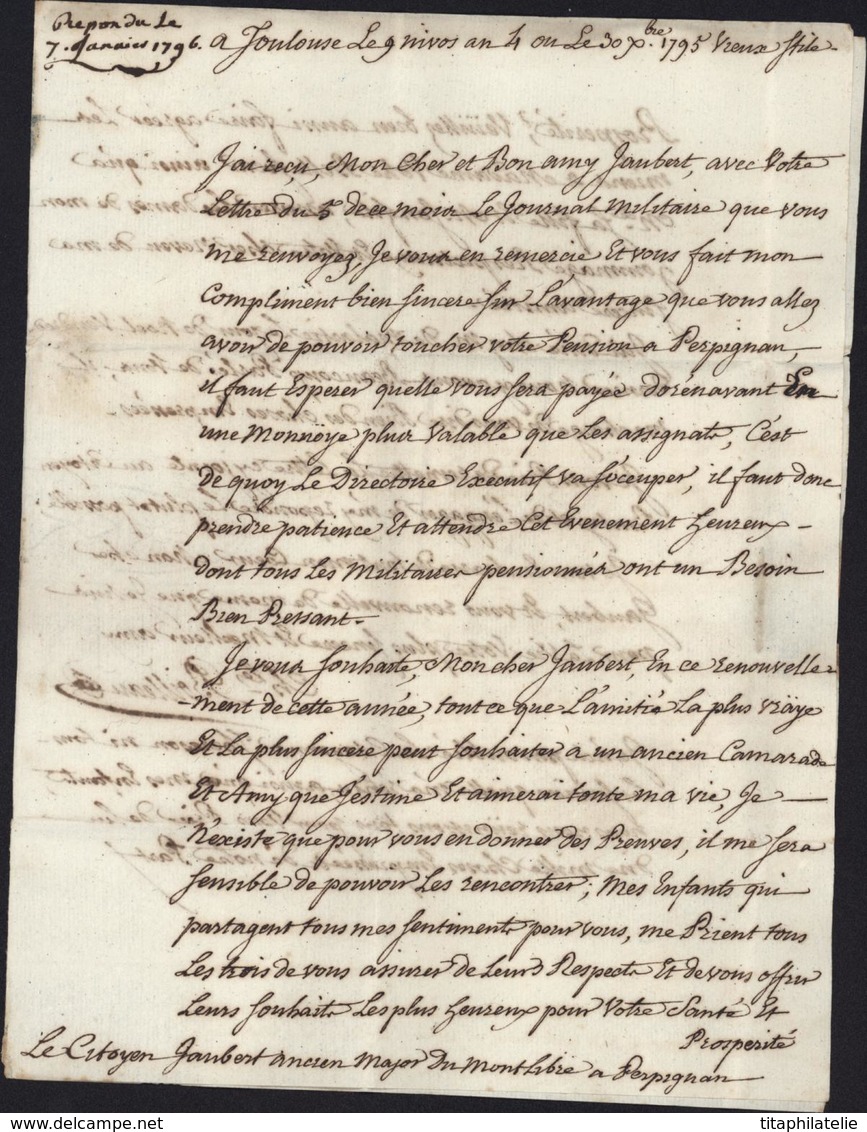 Repondu Le
7. Janvier 1796.
a Toulouse Le 9 nivos an 4 ou Le 30 Xbre 1795 Vieux stile.
J'ai reçu, Mon Cher et Bon amy Jaubert, avec Votre
Lettre du 5 de ce mois Le Journal Militaire que vous
me renvoyez, Je vous en remercie Et vous fait mon
Compliment bien sincere sur L'avantage que vous allez
avoir de pouvoir toucher votre Pension a Perpignan,
il faut Esperer quelle vous sera payée dorenavant En
une Monnöye plus valable que Les assignats, C'est
de quoy Le Directoire Executif va s'ocuper, il faut donc
prendre patience Et attendre Cet Evenement heureux
dont tous Les Militaires pensionnés ont un Besoin
Bien Pressant.
Je vous souhaite, Mon cher Jaubert, En ce renouvelle-
-ment de cette année, tout ce que L'amitié La plus vräye
Et La plus sincere peut souhaiter a un ancien Camarade
Et Amy que J'estime Et aimerai toute ma vie, Je
N'existe que pour vous en donner des Preuves, il me sera
sensible de pouvoir Les rencontrer; Mes Enfants qui
partagent tous mes sentiments pour vous, me Prient tous
Les trois de vous assurer de Leurs Respects Et de vous offrir
Leurs souhaits Les plus heureux pour Votre Santé Et
Prosperité
Le Citoyen Jaubert ancien Major Du Mont Libre a Perpignan
titaphilatelie